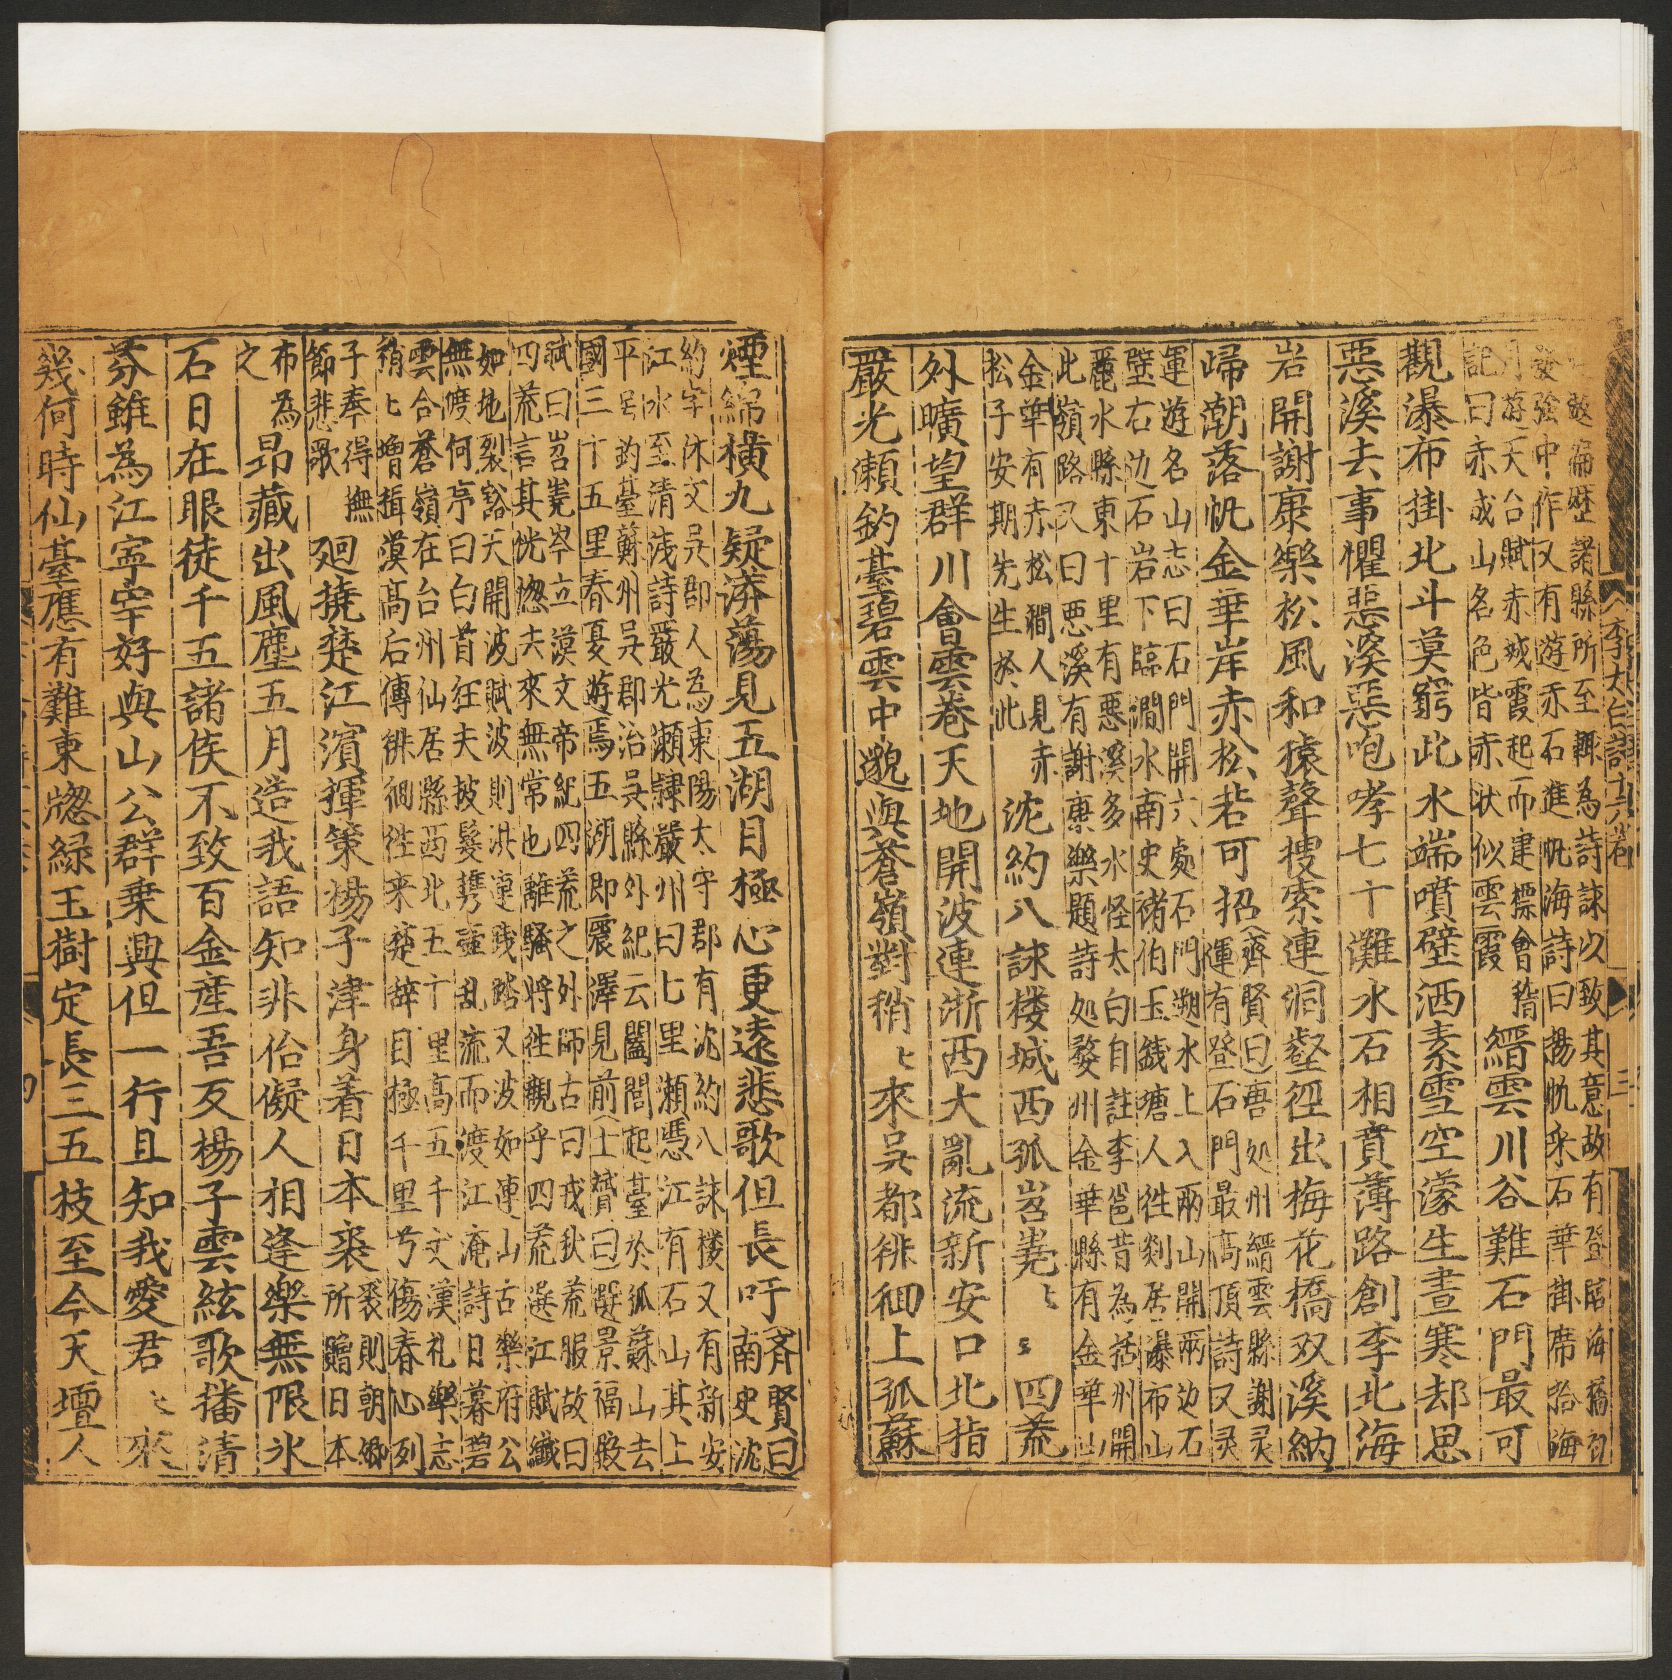 遊遍歷諸縣所至輒為詩詠以致其意故有登臨海嶠初
發強中作又有游赤石進帆海詩曰揚帆采石華掛席拾海
月游天台賦赤城霞起而建標會稽
記曰赤成山名色皆赤狀似雲霞
縉雲川谷難石門最可
觀瀑布掛北斗莫窮此水端噴壁洒素雪空濛生晝寒却思
惡溪去寧懼惡溪惡咆哮七十灘水石相賁薄路創李北海
岩開謝康樂松風和猿聲搜索連洞壑徑出梅花橋双溪納
歸潮落帆金華岸赤松若可招
齊賢曰吾処州縉雲縣謝灵
運有登石門最高頂詩又灵
運游名山志曰石門開六處石門遡水上入兩山開兩边石
壁右边石岩下臨澗水南史褚伯玉錢塘人徃剡居瀑布山
麗水縣東十里有惡溪多水怪太白自註李邕昔為括州開
此嶺路又曰悪溪有謝康樂題詩処婺州金華縣有金華山
金華有赤松澗人見赤
松子安期先生於此
沈約八詠楼城西孤岧嶤ヒミ四荒
外曠望群川會雲卷天地開波連浙西大亂流新安口北指
嚴光瀬釣䑓碧雲中邈與蒼嶺對稍ヒ來吳都徘徊上孤蘇
煙綿橫九疑漭蕩見五湖目極心更遠悲歌但長吁
齐賢曰
南史沈
約字休文吳郡人為東陽太守郡有沈約八詠楼又有新安
江水至清浅詩嚴光瀬隸嚴州曰七里瀬凴江有石山其上
平呂釣䑓蘇州吳郡治吳縣外紀云闔閭起䑓於孤蘇山去
國三十五里春夏游焉五湖即震澤見前士贇曰選景福殿
賦曰岧嶤岑立漠文帝紀四荒之外師古曰戎狄荒服故曰
四荒言其恍惚去來無常也離騷將徃觀乎四荒選江賦纎
如地裂豁天開波賦波則洪漣踠踏又波如連山古樂府公
無渡何序曰白首狂夫披髮携壺乱流而渡江淹詩日暮碧
雲合蒼嶺在台州仙居縣西北五十里高五千丈漢礼樂志
稍ヒ增揖漠高后傳徘徊徃来楚辞目極千里兮傷春心列
子奉得撫
節悲歌
廻撓楚江濵揮策揚子津身着日本裘
裘則朝卿
所贈日本
布為
之
昂藏出風塵五月造我語知非佁儗人相逢樂無限氷
石日在眼徒千五諸侯不致百金産吾友揚子雲絃歌播清
芬雖為江寧宰好與山公群乗興但一行且知我愛君ヒ來
幾何時仙䑓應有難東窓緑玉樹定長三五枝至今天壇人
李太白詩十六卷
三
四